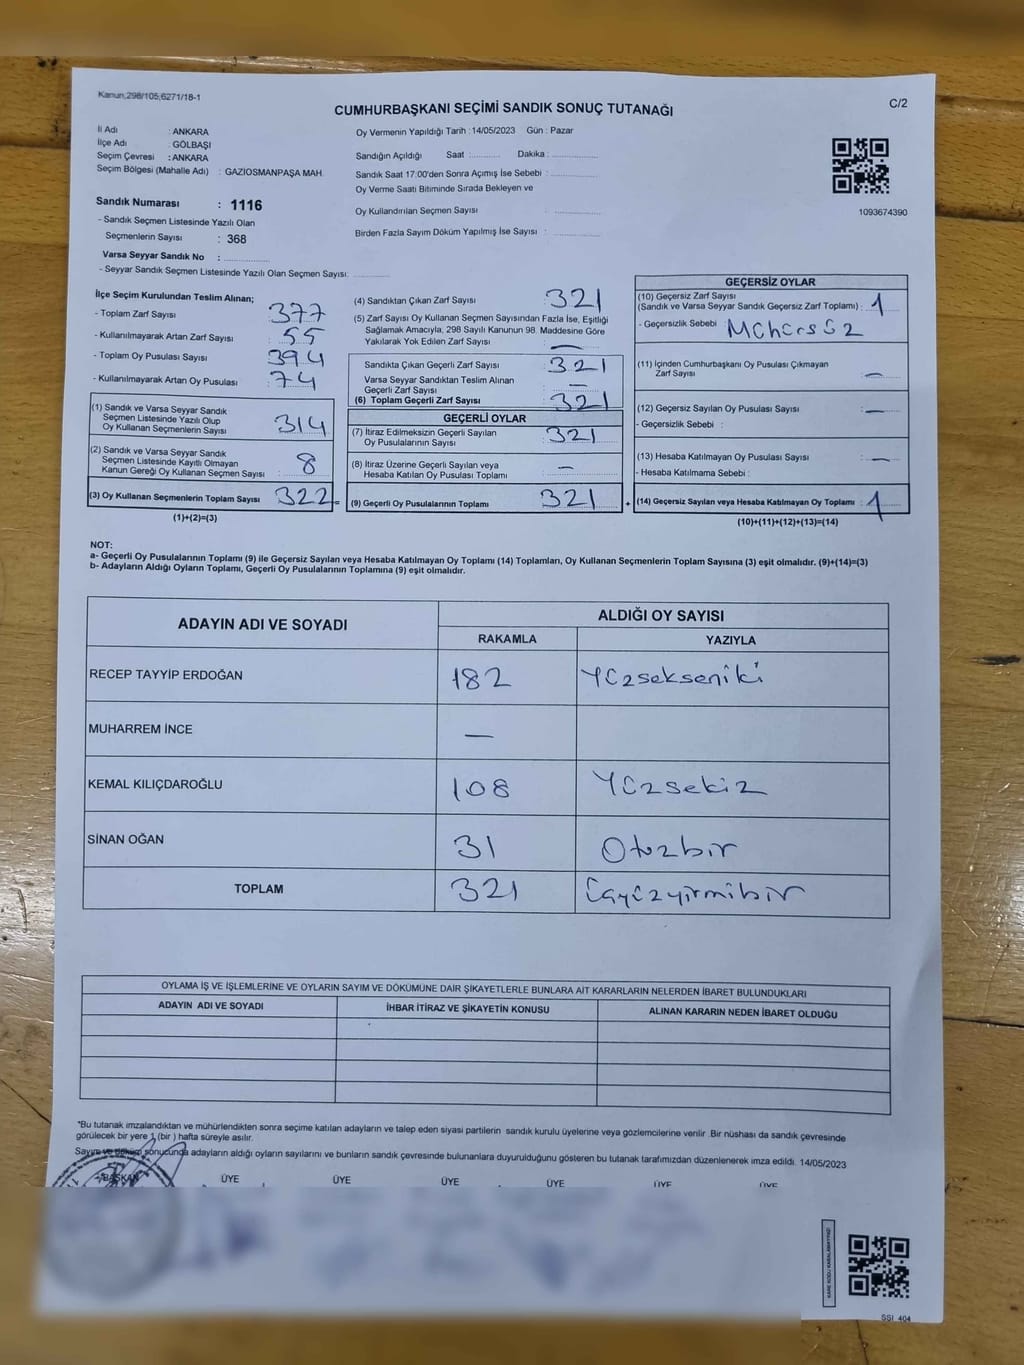 Kanun,298/105,6271/18-1
CUMHURBAŞKANI SEÇİMİ SANDIK SONUÇ TUTANAĞI
C/2
İl Adı : ANKARA
İlçe Adı : GÖLBAŞI
Seçim Çevresi : ANKARA
Seçim Bölgesi (Mahalle Adı) : GAZİOSMANPAŞA MAH.
Sandık Numarası : 1116
- Sandık Seçmen Listesinde Yazılı Olan
Seçmenlerin Sayısı : 368
Varsa Seyyar Sandık No : ..............
- Seyyar Sandık Seçmen Listesinde Yazılı Olan Seçmen Sayısı: ..............
Oy Vermenin Yapıldığı Tarih : 14/05/2023 Gün : Pazar
Sandığın Açıldığı Saat :.......... Dakika : ..............
Sandık Saat 17:00'den Sonra Açımış İse Sebebi : ..............
Oy Verme Saati Bitiminde Sırada Bekleyen ve
Oy Kullandırılan Seçmen Sayısı : ..............
Birden Fazla Sayım Döküm Yapılmış İse Sayısı : ..............
1093674390
İlçe Seçim Kurulundan Teslim Alınan;
- Toplam Zarf Sayısı : 377
- Kullanılmayarak Artan Zarf Sayısı : 55
- Toplam Oy Pusulası Sayısı : 394
- Kullanılmayarak Artan Oy Pusulası : 74
(1) Sandık ve Varsa Seyyar Sandık
Seçmen Listesinde Yazılı Olup
Oy Kullanan Seçmenlerin Sayısı : 314
(2) Sandık ve Varsa Seyyar Sandık
Seçmen Listesinde Kayıtlı Olmayan
Kanun Gereği Oy Kullanan Seçmen Sayısı : 8
(3) Oy Kullanan Seçmenlerin Toplam Sayısı : 322 =
(1)+(2)=(3)
(4) Sandıktan Çıkan Zarf Sayısı : 321
(5) Zarf Sayısı Oy Kullanan Seçmen Sayısından Fazla İse, Eşitliği
Sağlamak Amacıyla; 298 Sayılı Kanunun 98. Maddesine Göre
Yakılarak Yok Edilen Zarf Sayısı : —
Sandıkta Çıkan Geçerli Zarf Sayısı : 321
Varsa Seyyar Sandıktan Teslim Alınan
Geçerli Zarf Sayısı : —
(6) Toplam Geçerli Zarf Sayısı : 321
GEÇERLİ OYLAR
(7) İtiraz Edilmeksizin Geçerli Sayılan
Oy Pusulalarının Sayısı : 321
(8) İtiraz Üzerine Geçerli Sayılan veya
Hesaba Katılan Oy Pusulası Toplamı : —
(9) Geçerli Oy Pusulalarının Toplamı : 321 +
GEÇERSİZ OYLAR
(10) Geçersiz Zarf Sayısı
(Sandık ve Varsa Seyyar Sandık Geçersiz Zarf Toplamı) : 1
- Geçersizlik Sebebi : Mühürsüz
(11) İçinden Cumhurbaşkanı Oy Pusulası Çıkmayan
Zarf Sayısı : —
(12) Geçersiz Sayılan Oy Pusulası Sayısı : —
- Geçersizlik Sebebi :
(13) Hesaba Katılmayan Oy Pusulası Sayısı : —
- Hesaba Katılmama Sebebi :
(14) Geçersiz Sayılan veya Hesaba Katılmayan Oy Toplamı : 1
(10)+(11)+(12)+(13)=(14)
NOT:
a- Geçerli Oy Pusulalarının Toplamı (9) ile Geçersiz Sayılan veya Hesaba Katılmayan Oy Toplamı (14) Toplamları, Oy Kullanan Seçmenlerin Toplam Sayısına (3) eşit olmalıdır. (9)+(14)=(3)
b- Adayların Aldığı Oyların Toplamı, Geçerli Oy Pusulalarının Toplamına (9) eşit olmalıdır.
ADAYIN ADI VE SOYADI ALDIĞI OY SAYISI
RAKAMLA YAZIYLA
RECEP TAYYİP ERDOĞAN 182 Yüzsekseniki
MUHARREM İNCE —
KEMAL KILIÇDAROĞLU 108 Yüzsekiz
SİNAN OĞAN 31 Otuzbir
TOPLAM 321 Üçyüzyirmibir
OYLAMA İŞ VE İŞLEMLERİNE VE OYLARIN SAYIM VE DÖKÜMÜNE DAİR ŞİKAYETLERLE BUNLARA AİT KARARLARIN NELERDEN İBARET BULUNDUKLARI
ADAYIN ADI VE SOYADI İHBAR İTİRAZ VE ŞİKAYETİN KONUSU ALINAN KARARIN NEDEN İBARET OLDUĞU
*Bu tutanak imzalandıktan ve mühürlendikten sonra seçime katılan adayların ve talep eden siyasi partilerin sandık kurulu üyelerine veya gözlemcilerine verilir .Bir nüshası da sandık çevresinde
görülecek bir yere 1 (bir ) hafta süreyle asılır.
Sayım ve döküm sonucunda adayların aldığı oyların sayılarını ve bunların sandık çevresinde bulunanlara duyurulduğunu gösteren bu tutanak tarafımızdan düzenlenerek imza edildi. 14/05/2023
BAŞKAN ÜYE ÜYE ÜYE ÜYE ÜYE ÜYE
SSI_404